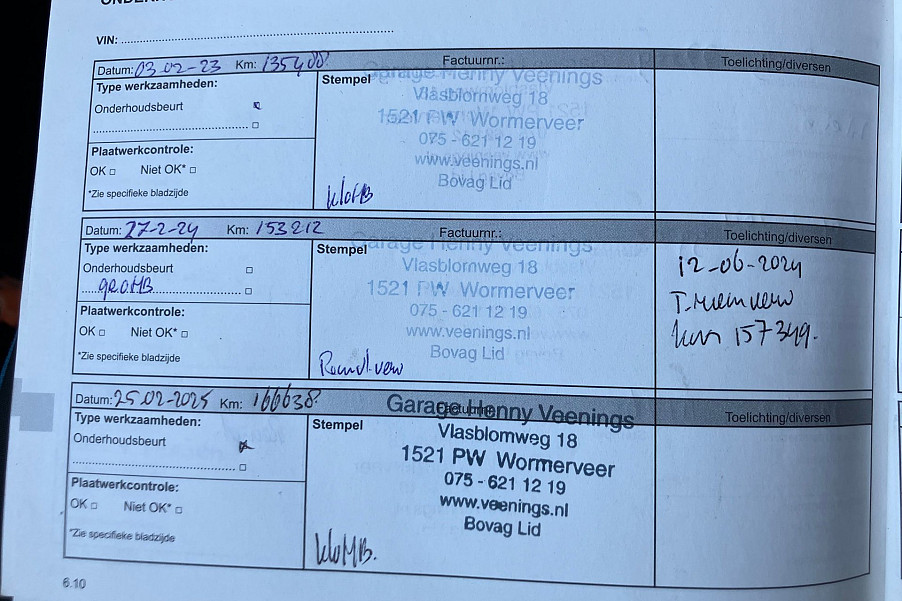 VIN:
Datum: 03-02-23 Km: 135408 Factuurnr.: Toelichting/diversen
Type werkzaamheden:
Onderhoudsbeurt
Plaatwerkcontrole:
OK Niet OK*
*Zie specifieke bladzijde
Stempel
Garage Henny Veenings
Vlasblomweg 18
1521 PW Wormerveer
075 - 621 12 19
www.veenings.nl
Bovag Lid
Datum: 27-2-24 Km: 153212 Factuurnr.: Toelichting/diversen
Type werkzaamheden:
Onderhoudsbeurt
gr.OHB
Plaatwerkcontrole:
OK Niet OK*
*Zie specifieke bladzijde
Stempel
Garage Henny Veenings
Vlasblomweg 18
1521 PW Wormerveer
075 - 621 12 19
www.veenings.nl
Bovag Lid
12-06-2024
km 157349.
Datum: 25-02-2025 Km: 166638 Factuurnr.: Toelichting/diversen
Type werkzaamheden:
Onderhoudsbeurt
Plaatwerkcontrole:
OK Niet OK*
*Zie specifieke bladzijde
Stempel
Garage Henny Veenings
Vlasblomweg 18
1521 PW Wormerveer
075 - 621 12 19
www.veenings.nl
Bovag Lid
6.10